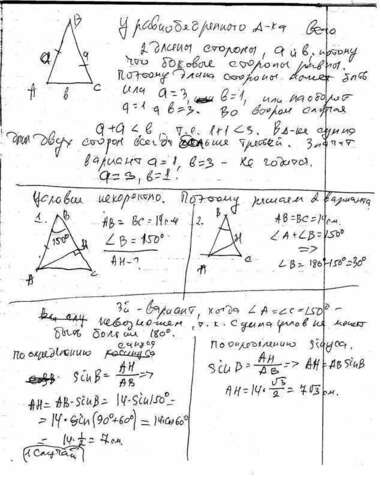 У равнобедренного Δ-ка всего
2 длины стороны, a и b, потому
что боковые стороны равны.
Поэтому длина стороны может быть
или a=3, b=1, или наоборот
a=1 а b=3. Во втором случае
a+a<b т.е. 1+1<3. В Δ-ке сумма
двух сторон всегда больше третьей. Значит
вариант a=1, b=3 - не годится.
a=3, b=1!
B
a
a
A
b
C
Условие некоректно. Поэтому решаем 2 варианта
1.
B
150°
H
A
C
AB = BC = 14см
∠B = 150°
AH-?
2.
B
H
A
C
AB=BC=14см.
∠A+∠B=150°
=>
∠B=180-150°=30°
3й - вариант, когда ∠A=∠C=150° -
невозможен, т.к. сумма углов не может
быть больше 180°.
По определению синуса
sinB = AH/AB =>
AH = AB·sinB = 14·sin150° =
= 14·sin(90°+60°) = 14cos60°
= 14·1/2 = 7см.
1 случай
По определению sinуса.
sinB = AH/AB => AH = AB sinB
AH = 14·√3/2 = 7√3 см.